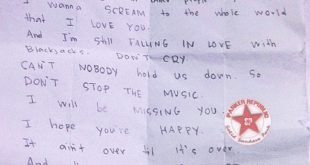 I wanna SCREAM to the whole world
that I LOVE YOU.
And I'm still FALLING IN LOVE with
Blackjacks. DON'T CRY
CAN'T NOBODY hold us down. So
DON'T STOP THE MUSIC.
I will be MISSING YOU.
I hope you're HAPPY.
It ain't over til it's over.
PARKER REPUBLIC